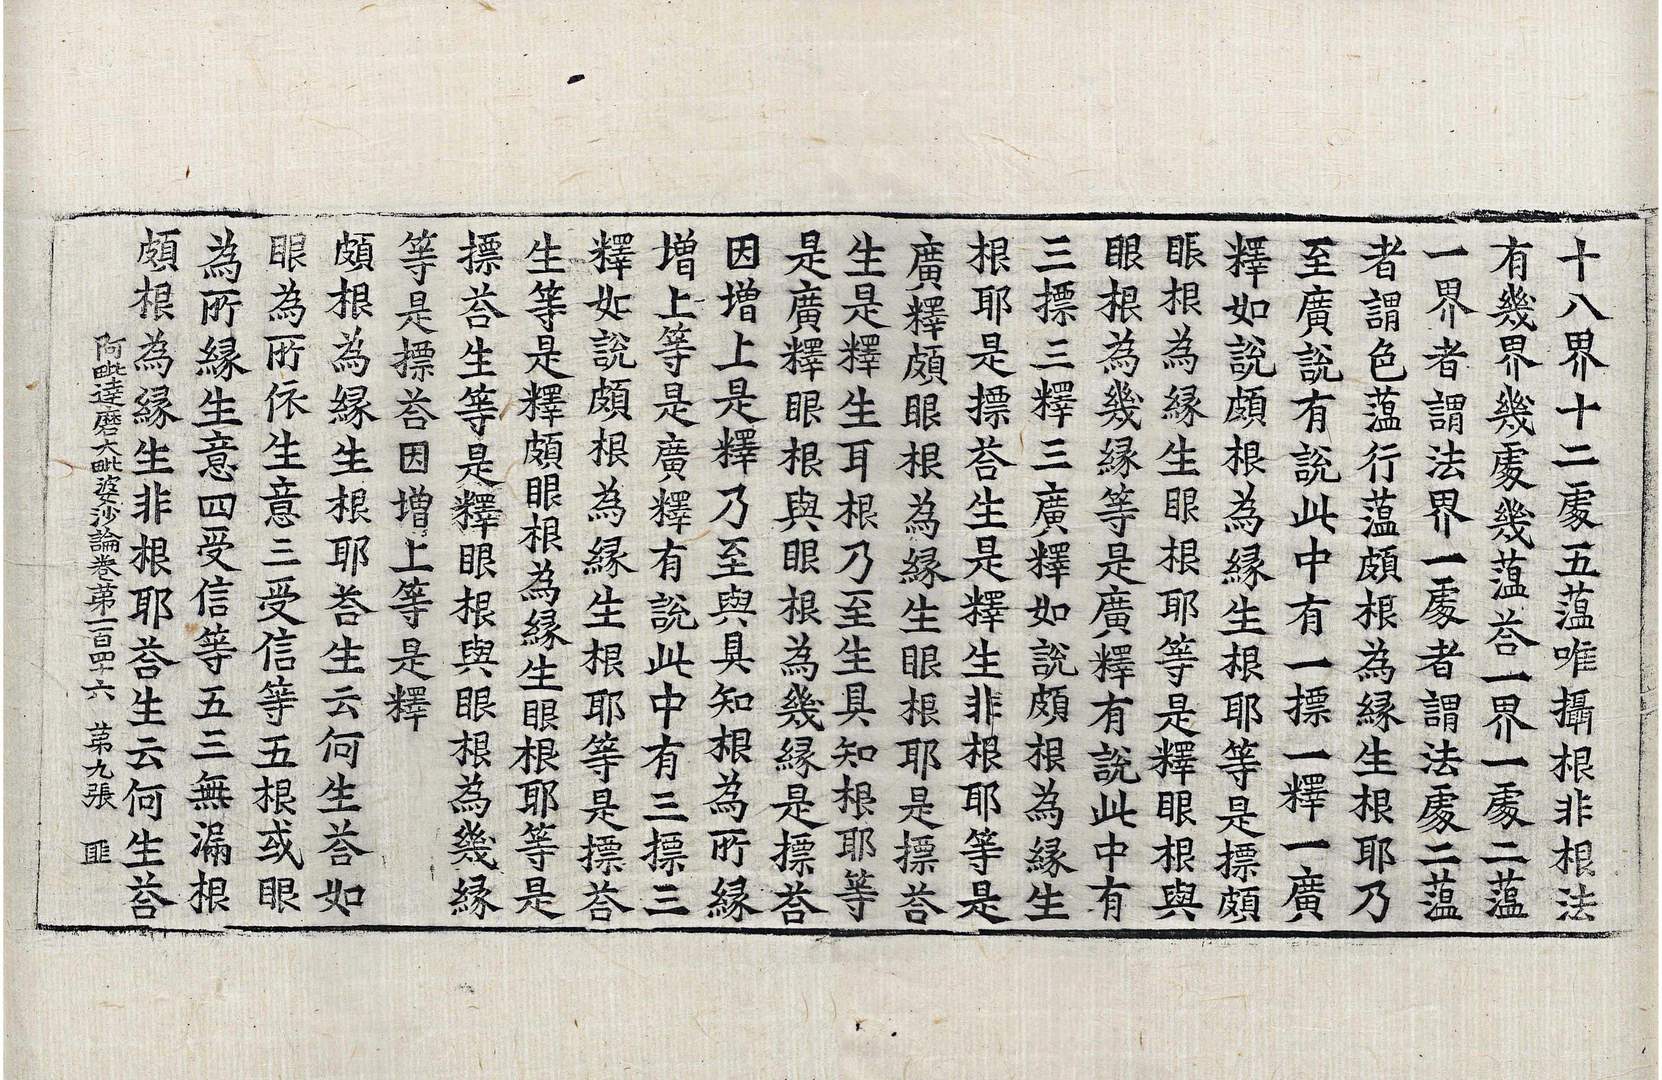 十八界十二處五薀唯攝根非根法
有幾界幾處幾薀荅一界一處二薀
一界者謂法界一處者謂法處二薀
者謂色薀行薀頗根為縁生根耶乃
至廣說有說此中有一摽一釋一廣
釋如說頗根為縁生根耶等是摽頗
眼根為縁生眼根耶等是釋眼根與
眼根為幾縁等是廣釋有說此中有
三摽三釋三廣釋如說頗根為縁生
根耶是摽荅生是釋生非根耶等是
廣釋頗眼根為縁生眼根耶是摽荅
生是釋生耳根乃至生具知根耶等
是廣釋眼根與眼根為幾縁是摽荅
因增上是釋乃至與具知根為所縁
增上等是廣釋有說此中有三摽三
釋如說頗根為縁生根耶等是摽荅
生等是釋頗眼根為縁生眼根耶等是
摽荅生等是釋眼根與眼根為幾縁
等是摽荅因增上等是釋
頗根為縁生根耶荅生云何生荅如
眼為所依生意三受信等五根或眼
為所縁生意四受信等五三無漏根
頗根為縁生非根耶荅生云何生荅
阿毗達磨大毗婆沙論卷第一百四十六　苐九張　匪